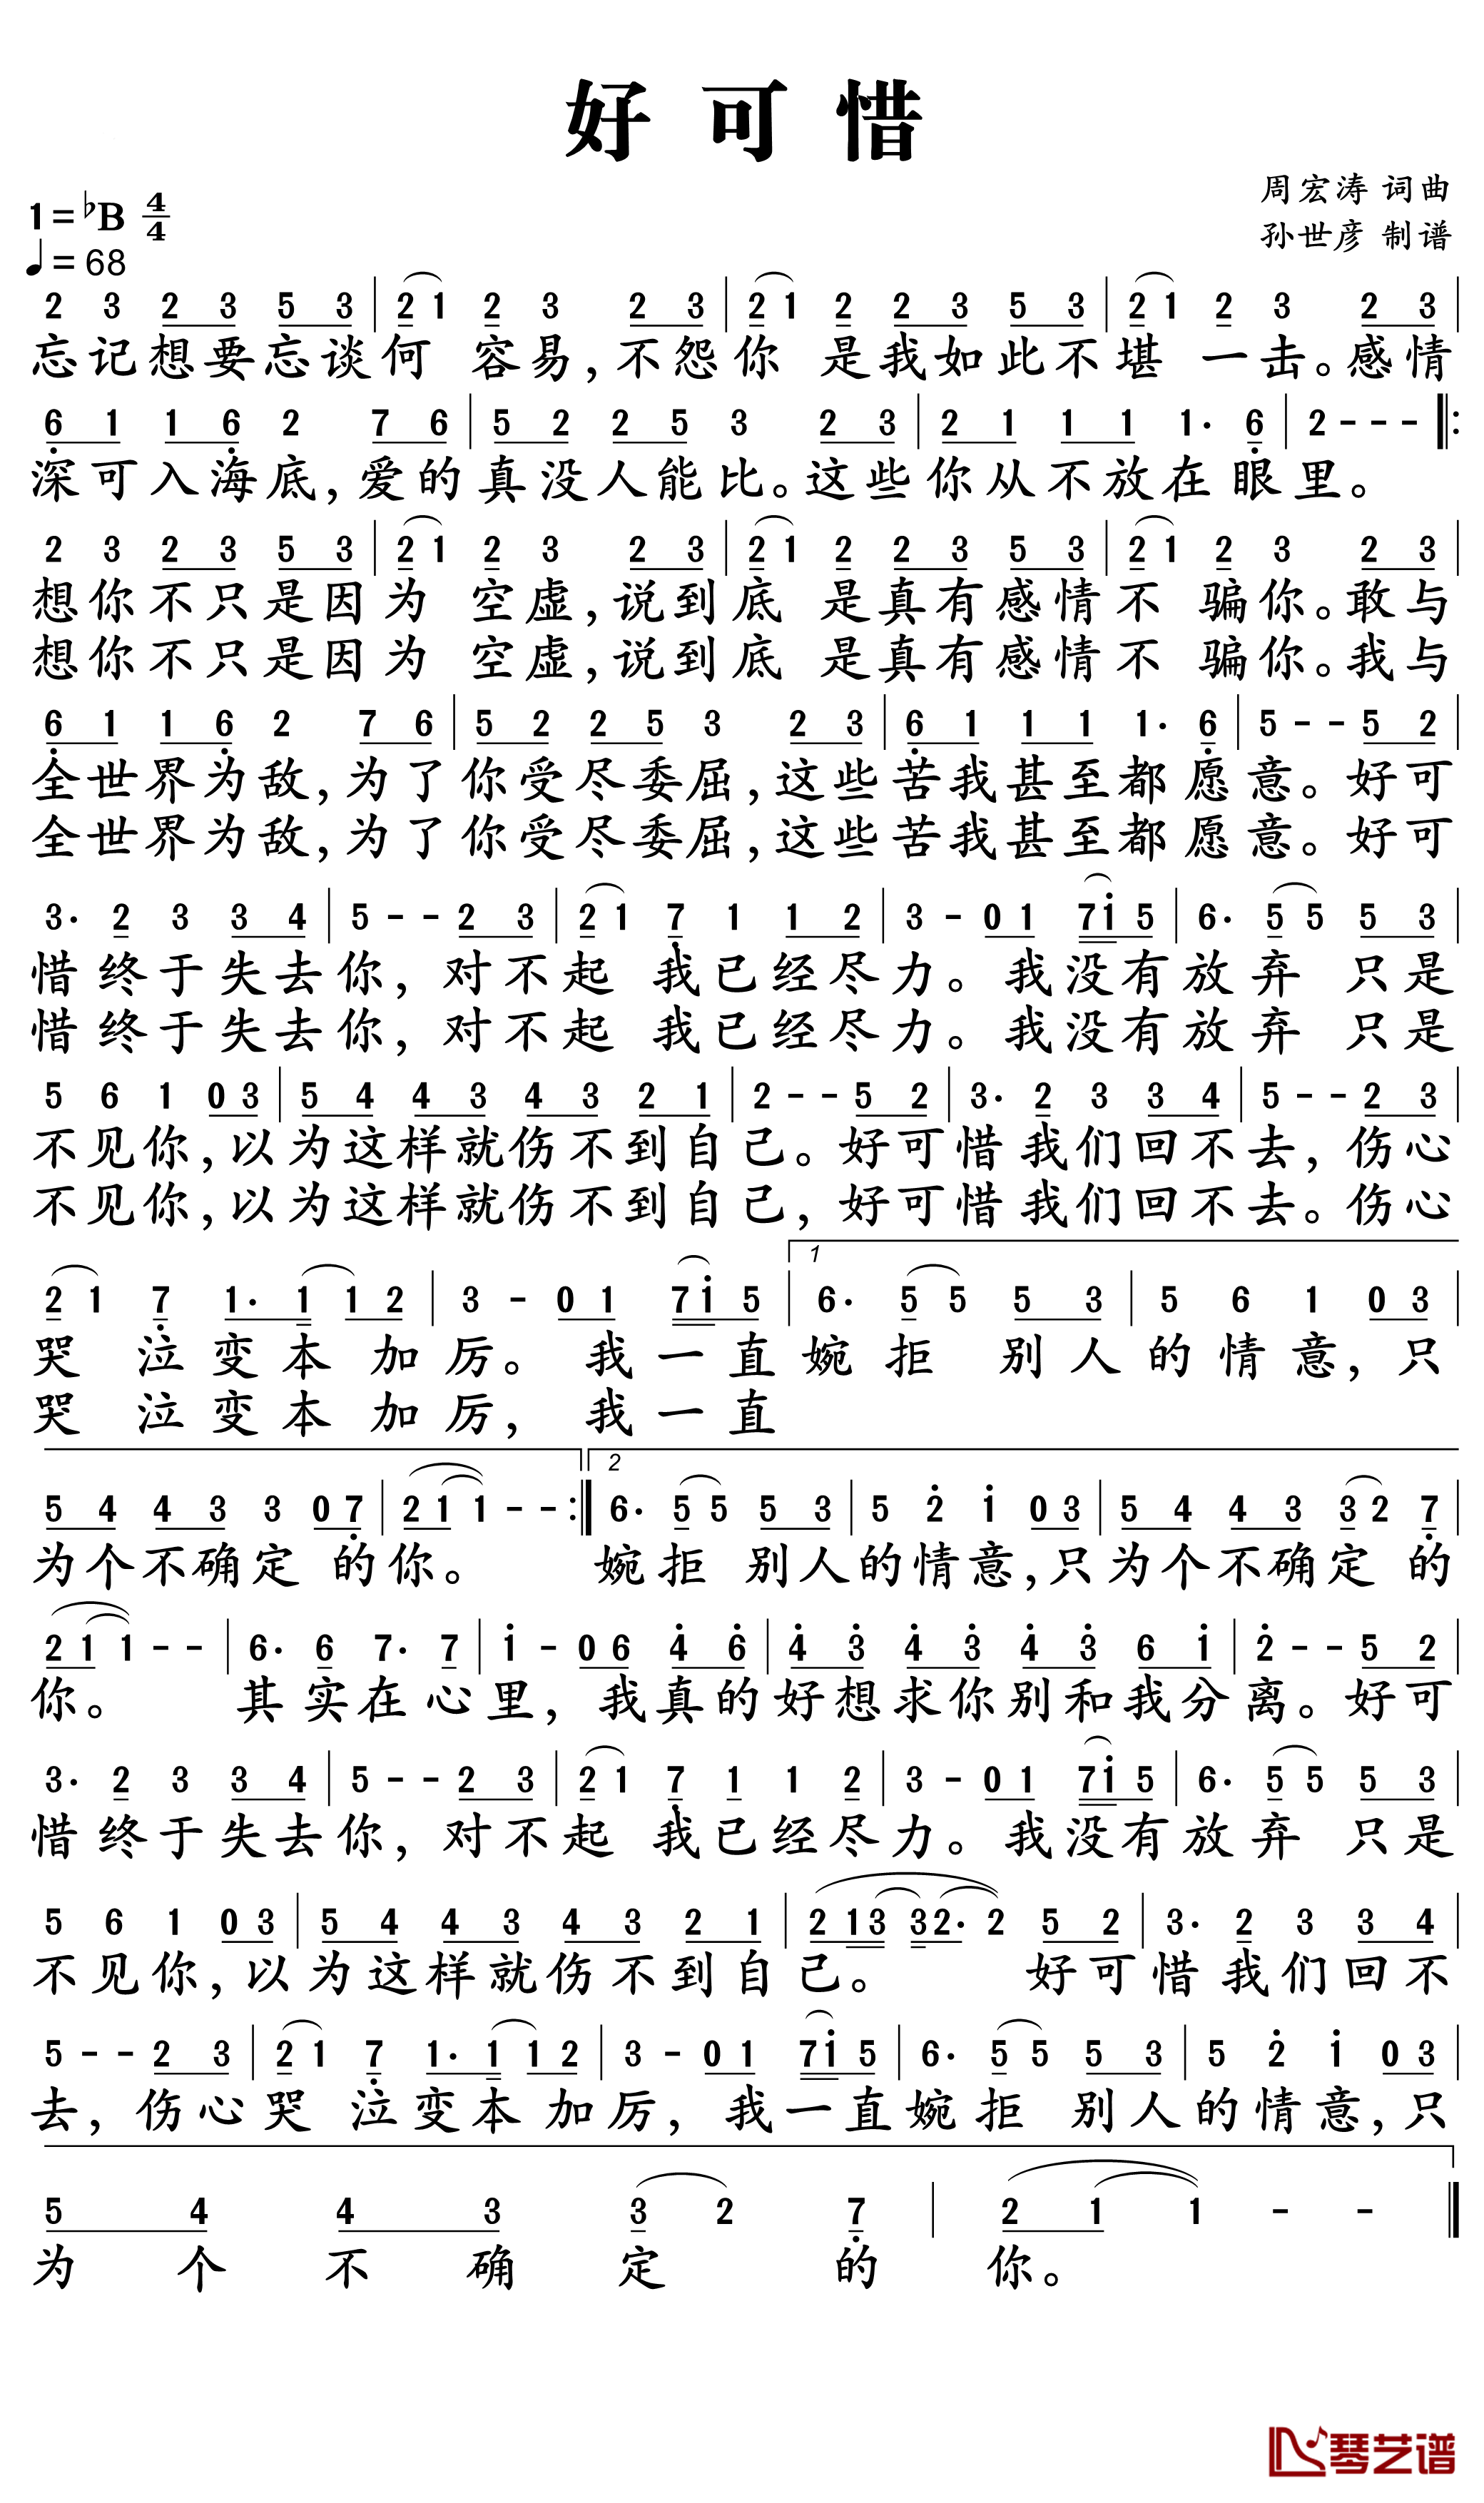 好可惜
周宏涛 词曲
1=♭B 4/4
孙世彦 制谱
♩=68
2 3 2 3 5 3 | 2 1 2 3 2 3 | 2 1 2 2 3 5 3 | 2 1 2 3 2 3 |
忘记想要忘谈何 容易,不怨你 是我如此不堪 一击。感情
6 1 1 6 2 7 6 | 5 2 2 5 3 2 3 | 2 1 1 1 1· 6 | 2 - - - ‖:
深可入海底,爱的真没人能比。这些你从不放在眼里。
2 3 2 3 5 3 | 2 1 2 3 2 3 | 2 1 2 2 3 5 3 | 2 1 2 3 2 3 |
想你不只是因为 空虚,说到底 是真有感情不 骗你。敢与
想你不只是因为 空虚,说到底 是真有感情不 骗你。我与
6 1 1 6 2 7 6 | 5 2 2 5 3 2 3 | 6 1 1 1 1· 6 | 5 - - 5 2
全世界为敌,为了你受尽委屈,这些苦我甚至都愿意。好可
全世界为敌,为了你受尽委屈,这些苦我甚至都愿意。好可
3· 2 3 3 4 | 5 - - 2 3 | 2 1 7 1 1 2 | 3 - 0 1 7 1 5 | 6· 5 5 5 3 |
惜终于失去你,对不起 我已经尽力。我没有放弃 只是
惜终于失去你,对不起 我已经尽力。我没有放弃 只是
5 6 1 0 3 | 5 4 4 3 4 3 2 1 | 2 - - 5 2 | 3· 2 3 3 4 | 5 - - 2 3 |
不见你,以为这样就伤不到自己。好可惜我们回不去,伤心
不见你,以为这样就伤不到自己,好可惜我们回不去。伤心
2 1 7 1· 1 1 2 | 3 - 0 1 7 1 5 | 1 6· 5 5 5 3 | 5 6 1 0 3 |
哭 泣变本 加厉。 我一直婉拒 别人的情意,只
哭 泣变本 加厉, 我一直
5 4 4 3 3 0 7 | 2 1 1 - - :‖ 2 6· 5 5 5 3 | 5 2 1 0 3 | 5 4 4 3 3 2 7 |
为个不确定 的你。 婉拒 别人的情意,只为个不确定 的
2 1 1 - - | 6· 6 7· 7 | 1 - 0 6 4 6 | 4 3 4 3 4 3 6 1 | 2 - - 5 2 |
你。 其实在心里,我真的好想求你别和我分离。好可
3· 2 3 3 4 | 5 - - 2 3 | 2 1 7 1 1 2 | 3 - 0 1 7 1 5 | 6· 5 5 5 3 |
惜终于失去你,对不起 我已经尽力。我没有放弃 只是
5 6 1 0 3 | 5 4 4 3 4 3 2 1 | 2 1 3 3 2· 2 5 2 | 3· 2 3 3 4 |
不见你,以为这样就伤不到自己。 好可惜我们回不
5 - - 2 3 | 2 1 7 1· 1 1 2 | 3 - 0 1 7 1 5 | 6· 5 5 5 3 | 5 2 1 0 3 |
去,伤心哭 泣变本 加厉,我一直婉拒 别人的情意,只
5 4 4 3 3 2 7 | 2 1 1 - - ‖
为个不确定 的 你。
琴艺谱